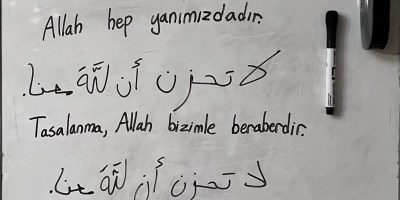 Allah hep yanımızdadır.
لا تحزن أن لله معنا.
Tasalanma, Allah bizimle beraberdir.
لا تحزن أن لله معنا.